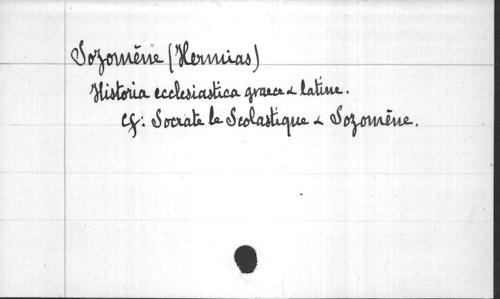 Sozomène (Hermias)
Historia ecclesiastica graece & latine.
Cf: Socrate le Scolastique & Sozomène.